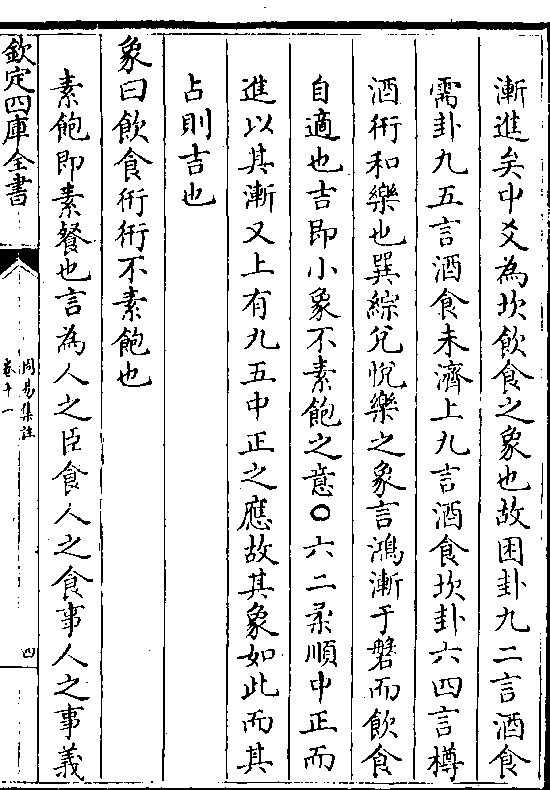 漸進矣中爻為坎飲食之象也故困卦九二言酒食
需卦九五言酒食未濟上九言酒食坎卦六四言樽
酒衎和樂也巽綜兌悅樂之象言鴻漸于磐而飲食
自適也吉即小象不素飽之意○六二柔順中正而
進以其漸又上有九五中正之應故其象如此而其
占則吉也
象曰飲食衎衎不素飽也
素飽即素餐也言為人之臣食人之食事人之事義
欽定四庫全書
周易集註
卷十一
四